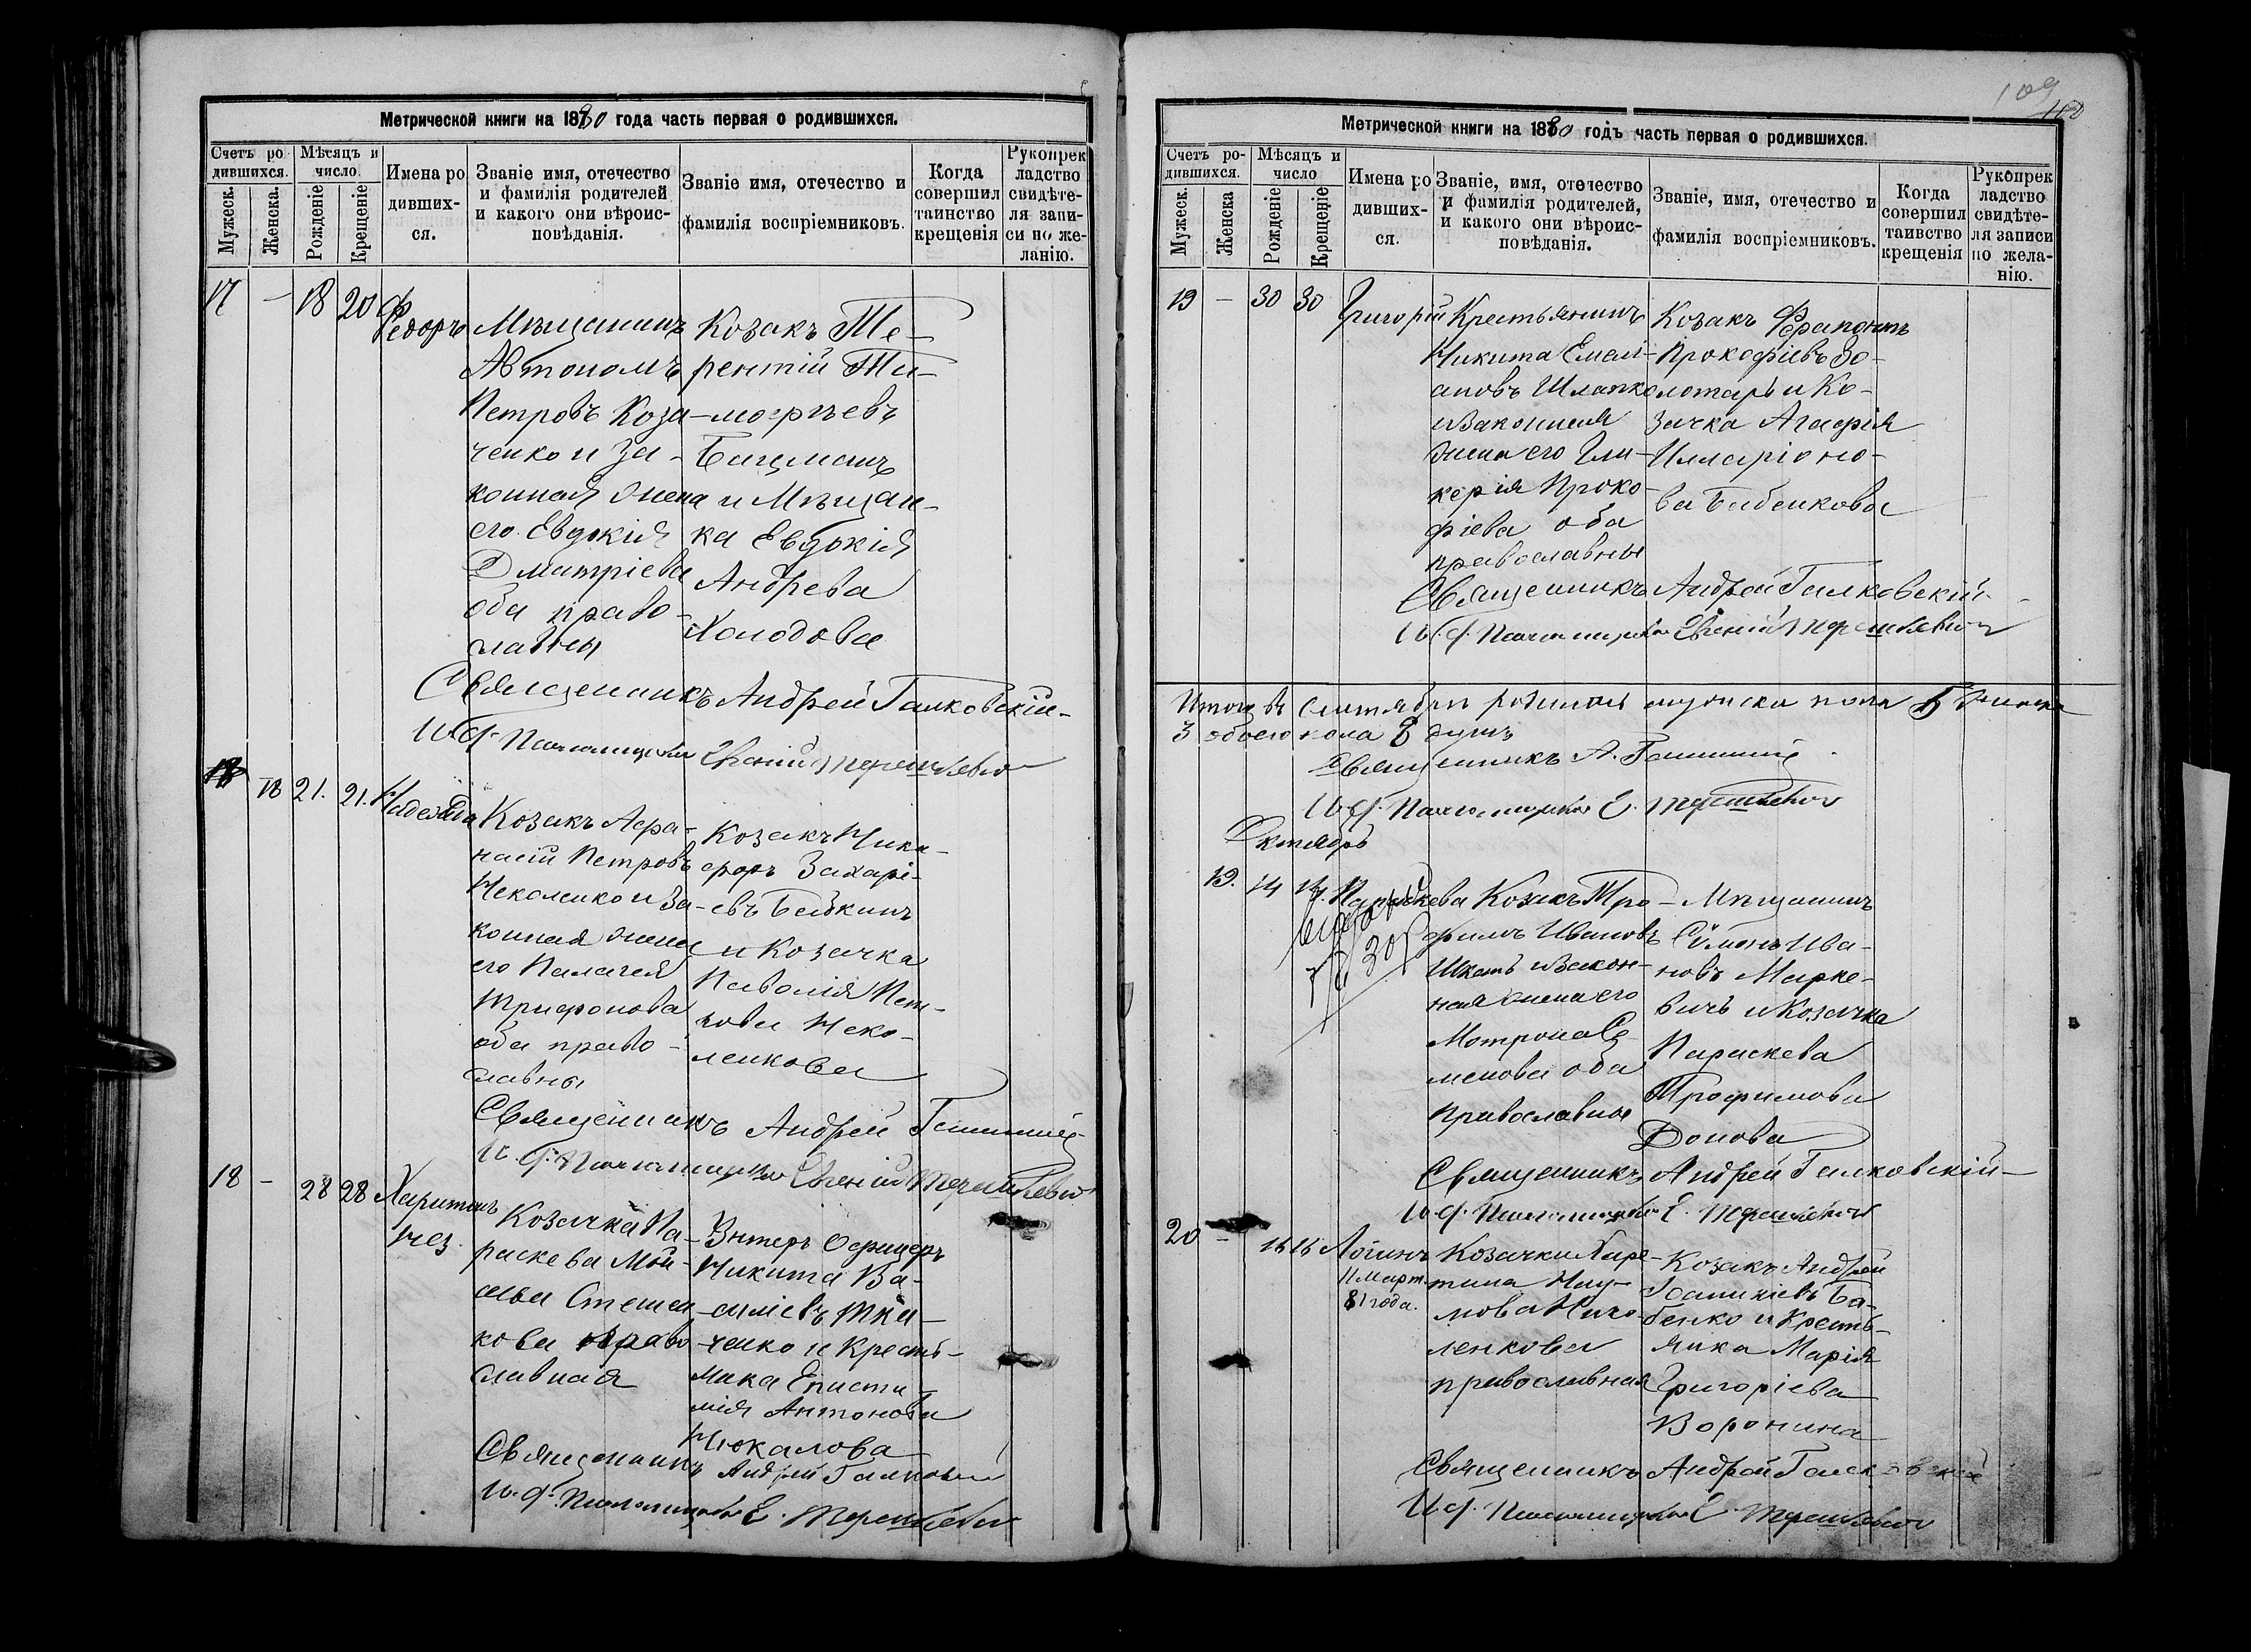 Метрической книги на 1880 года часть первая о родившихся.
Счетъ ро дившихся.
Мѣсяцъ и число.
Мужеск.
Женска.
Рожденіе
Крещеніе
Имена ро дивших- ся.
Званіе имя, отечество и фамилія родителей и какого они вѣроис- повѣданія.
Званіе имя, отечество и фамилія воспріемниковъ.
Когда совершил таинство крещенія
Рукоприк ладство свидѣте- ля запи- си по же- ланію.
17 - 18 20 Ѳедоръ
Мѣщанинъ
Автономъ
Петровъ Коза-
ченко и за-
конная жена
его Евдокія
Дмитріева
оба право-
славны
Козакъ Те-
рентій Ти-
моѳѣевъ
Бацманъ
и Мѣщан-
ка Евдокія
Андрева
Холодова
Священникъ Андрей Галковскій
И. д. Псаломщика Евгеній
18 21. 21. Надежда
Козакъ Аѳа-
насій Петровъ
и За-
конная жена
его Палагея
Трифонова
оба право-
славны
Козакъ Ника-
форъ Захарі-
евъ
и Козачка
Пет-
рова
Священникъ Андрей
И. д. Псаломщика Евгеній
18 - 28 28 Харитонъ
нез.
Козачка Па-
раскева Мои-
сѣева Стешен-
кова право
славная
Унтеръ Офицеръ
Никита Ва-
силіевъ Тка-
ченко и Кресть-
янка Еписти
мія Антонова
Чюкалова
Священникъ Андрей Галковскій
И. д. Псаломщика Е.
109
Метрической книги на 1880 годъ часть первая о родившихся.
Счетъ ро- дившихся.
Мѣсяцъ и число
Мужеск.
Женска
Рожденіе
Крещеніе
Имена ро дивших- ся.
Званіе, имя, отечество и фамилія родителей, и какого они вѣроис- повѣданія.
Званіе, имя, отечество и фамилія воспріемниковъ.
Когда совершил таивство крещенія
Рукоприк ладство свидѣте- ля записи по жела- нію.
19 - 30 30 Григорій
Крестьянинъ
Никита Емелі-
ановъ Шлапко
и Законная
жена его Гли-
керія Проко
фіева оба
православны
Козакъ Ферапонтъ
Прокофіевъ Зо-
лотарь и Ко-
зачка Агафія
Илларіоно-
ва Бабенкова
Священникъ Андрей Галковскій
И. д. Псаломщика Евгеній
Итого въ Сентябрѣ родилось мужска пола 5 женска
3 обоего пола 8 душъ
Священникъ А.
И. д. Псаломщика Е.
Октябрь
19. 14 14. Параскева
Козакъ Тро-
фимъ Ивановъ
и Закон-
ная жена его
Мотрона Се
менова оба
Православные
Мѣщанинъ
Сѵмонъ Ива-
новъ Марке-
вичъ и Козачка
Параскева
Трофимова
Донова
Священникъ Андрей Галковскій
И. д. Псаломщика Е.
20 - 16 16 Логинъ
11 Март.
81 года.
Козачки Харе-
тина Нау-
мова
ленкова
православная
Козакъ Андрей
Іоанніевъ Ба-
бенко и Кресть-
янка Марія
Григоріева
Воронина
Священникъ Андрей Галковскій
И. д. Псаломщика Е.